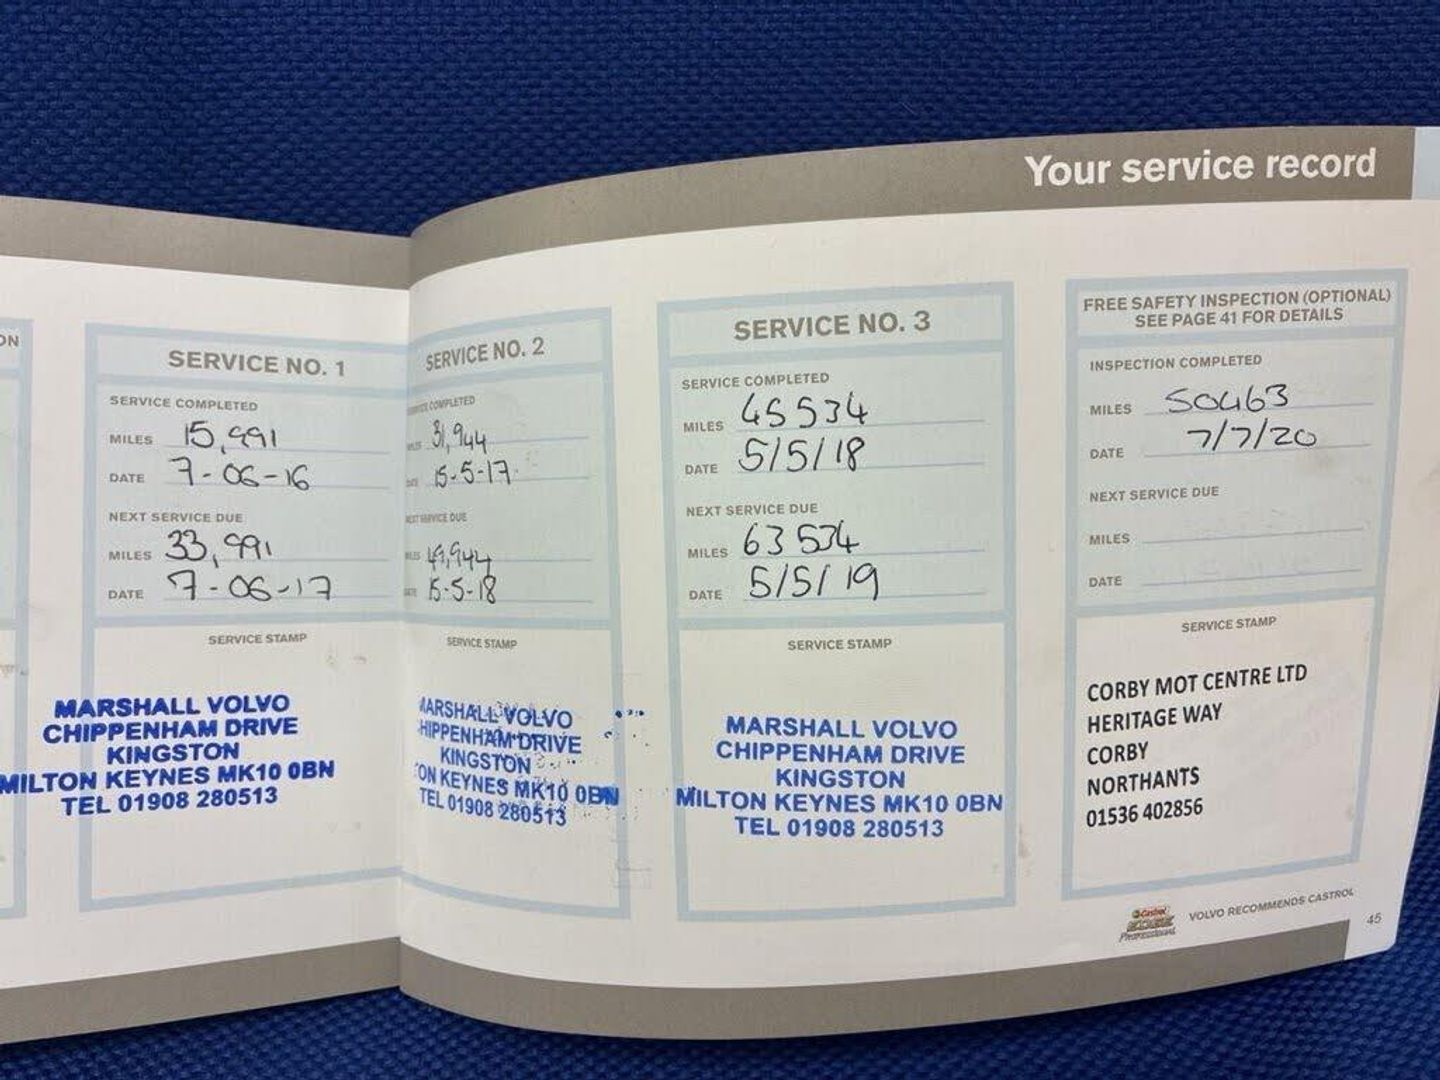 Your service record
ON
SERVICE NO. 1
SERVICE COMPLETED
MILES 15,991
DATE 7-06-16
NEXT SERVICE DUE
MILES 33,991
DATE 7-06-17
SERVICE STAMP
MARSHALL VOLVO
CHIPPENHAM DRIVE
KINGSTON
MILTON KEYNES MK10 0BN
TEL 01908 280513
SERVICE NO. 2
COMPLETED
31,944
15-5-17
SERVICE DUE
49,944
15-5-18
SERVICE STAMP
MARSHALL VOLVO
HIPPENHAM DRIVE
KINGSTON
ON KEYNES MK10 0BN
TEL 01908 280513
SERVICE NO. 3
SERVICE COMPLETED
MILES 45534
DATE 5/5/18
NEXT SERVICE DUE
MILES 63534
DATE 5/5/19
SERVICE STAMP
MARSHALL VOLVO
CHIPPENHAM DRIVE
KINGSTON
MILTON KEYNES MK10 0BN
TEL 01908 280513
FREE SAFETY INSPECTION (OPTIONAL)
SEE PAGE 41 FOR DETAILS
INSPECTION COMPLETED
MILES 50463
DATE 7/7/20
NEXT SERVICE DUE
MILES
DATE
SERVICE STAMP
CORBY MOT CENTRE LTD
HERITAGE WAY
CORBY
NORTHANTS
01536 402856
Castrol
EDGE
Professional
VOLVO RECOMMENDS CASTROL
45